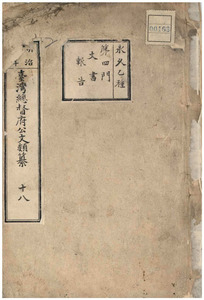 永久乙種
第四門
文書
報告
明治
年
臺灣總督府公文類纂
十八